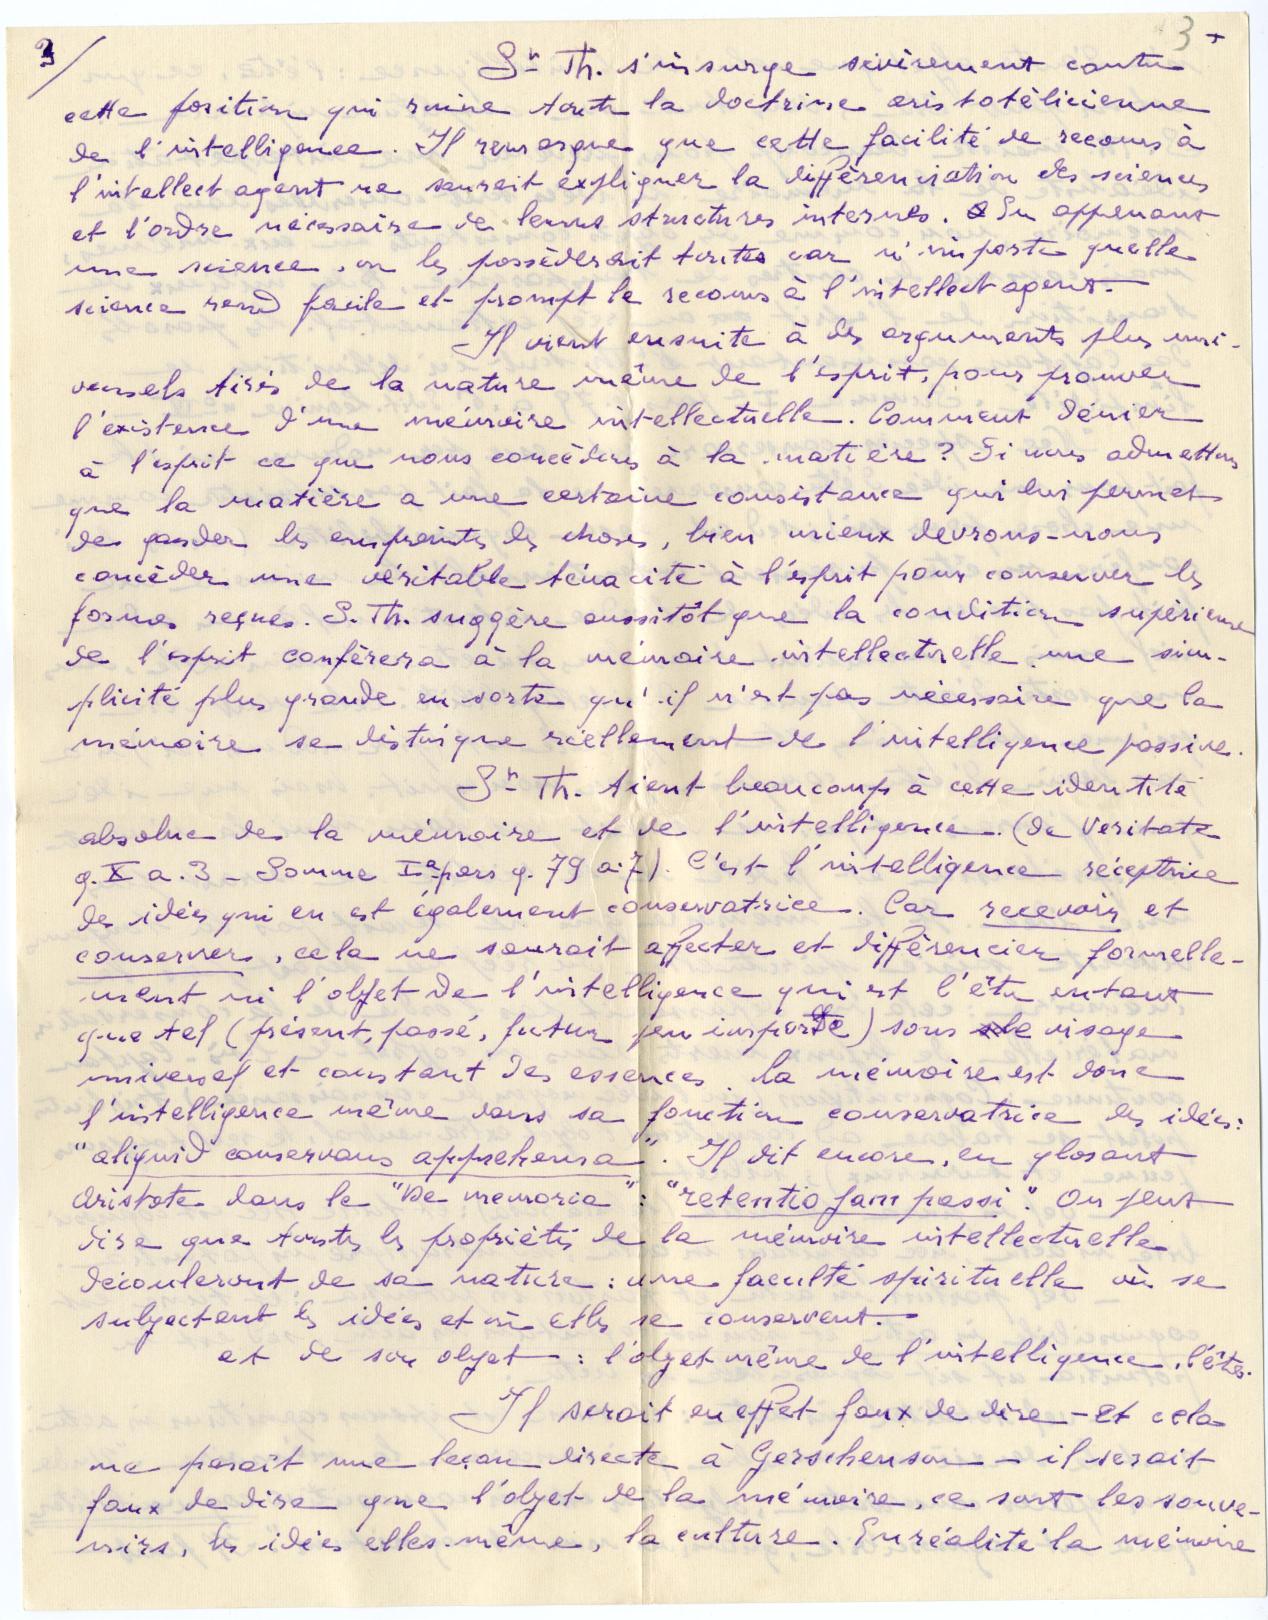 3/
3 +
St Th. s'insurge sévèrement contre
cette position qui ruine toute la doctrine aristotélicienne
de l'intelligence. Il remarque que cette facilité de recours à
l'intellect agent ne saurait expliquer la différenciation des sciences
et l'ordre nécessaire de leurs structures internes. En apprenant
une science, on les possèderait toutes car n'importe quelle
science rend facile et prompt le recours à l'intellect agent.
Il vient ensuite à des arguments plus uni-
versels tirés de la nature même de l'esprit, pour prouver
l'existence d'une mémoire intellectuelle. Comment dénier
à l'esprit ce que nous concédons à la matière? Si nous admettons
que la matière a une certaine consistance qui lui permet
de garder les empreintes des choses, bien mieux devrons-nous
concéder une véritable ténacité à l'esprit pour conserver les
formes reçues. S. Th. suggère aussitôt que la condition supérieure
de l'esprit conférera à la mémoire intellectuelle une sim-
plicité plus grande en sorte qu'il n'est pas nécessaire que la
mémoire se distingue réellement de l'intelligence passive.
St Th. tient beaucoup à cette identité
absolue de la mémoire et de l'intelligence. (De Veritate
q. X a. 3 - Somme Ia pars q. 79 a. 7). C'est l'intelligence réceptrice
des idées qui en est également conservatrice. Car recevoir et
conserver, cela ne saurait affecter et différencier formelle-
ment ni l'objet de l'intelligence qui est l'être en tant
que tel (présent, passé, futur peu importe) sous le visage
universel et constant des essences. La mémoire est donc
l'intelligence même dans sa fonction conservatrice des idées:
"aliquid conservans apprehensa". Il dit encore, en glosant
Aristote dans le "De memoria": "retentio jam passi". On peut
dire que toutes les propriétés de la mémoire intellectuelle
découleront de sa nature : une faculté spirituelle où se
subjectent les idées et où elles se conservent.
et de son objet : l'objet même de l'intelligence, l'être.
Il serait en effet faux de dire - et cela
me paraît une leçon directe à Gerschenson - il serait
faux de dire que l'objet de la mémoire, ce sont les souve-
nirs, les idées elles-même, la culture. En réalité la mémoire